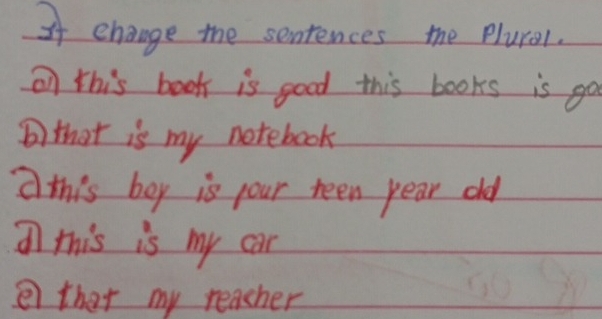 1) change the sentences the plural.
a) this book is good this books is goo
b) that is my notebook
c) this boy is four teen year old
d) this is my car
e) that my teacher